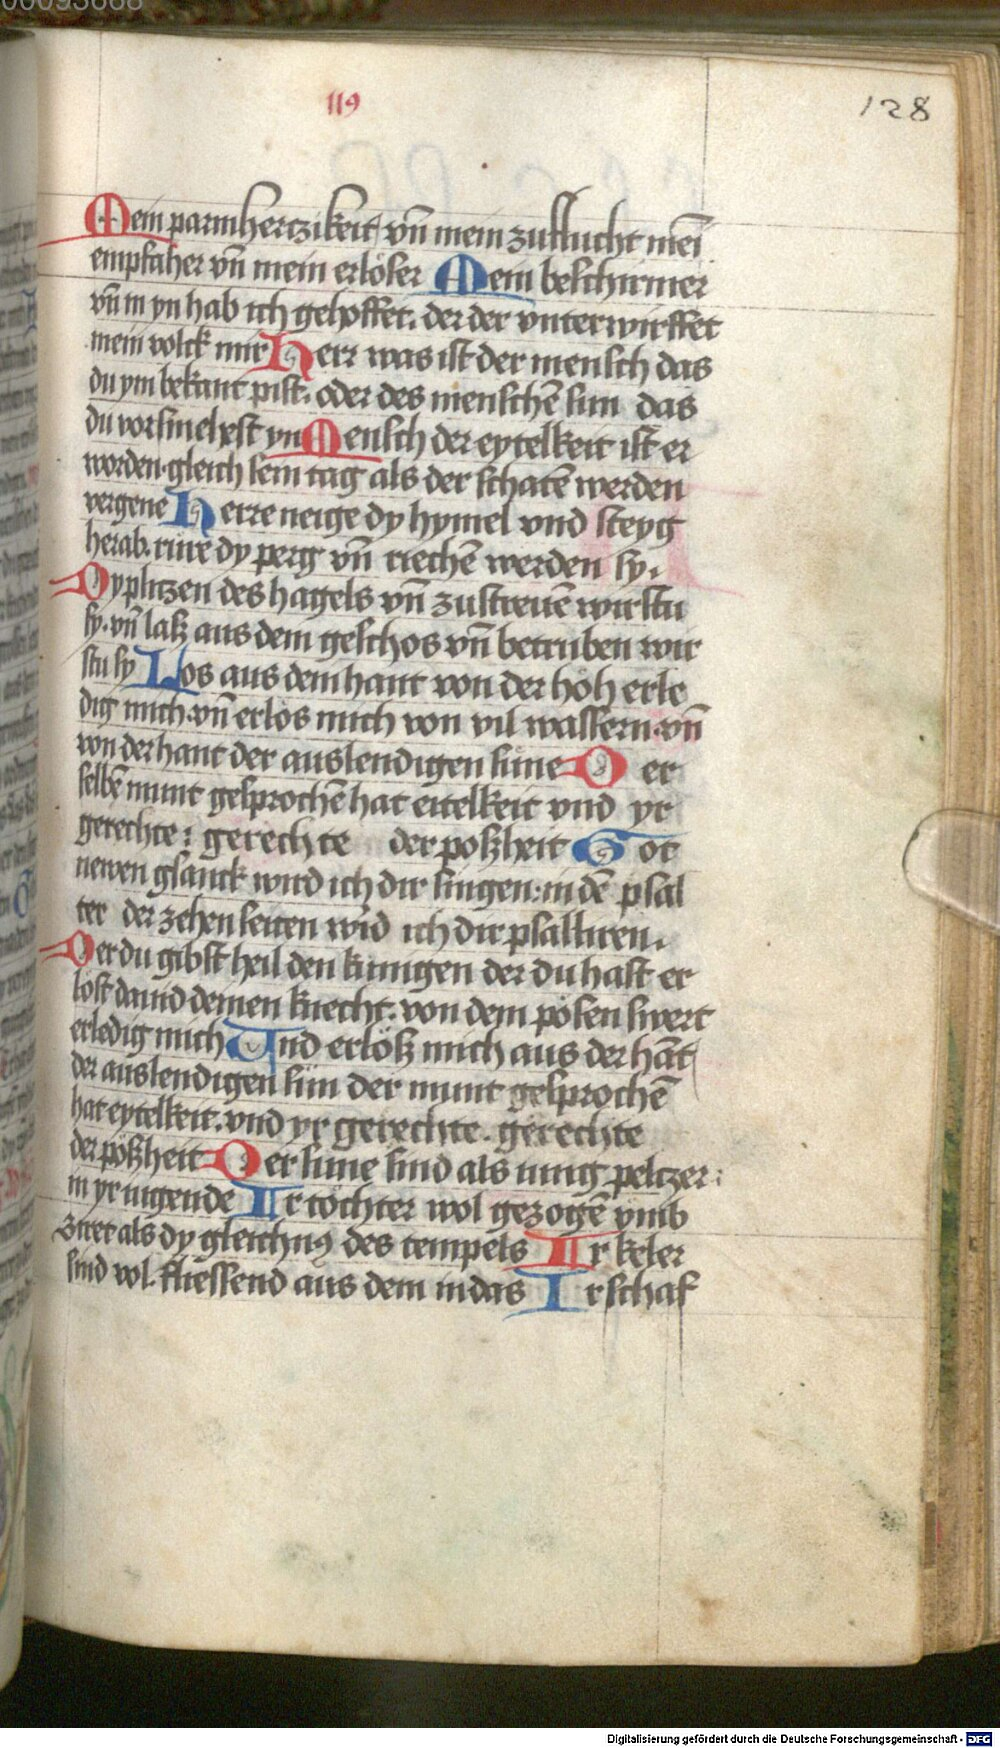 00093668
119
128
Mein parmhertzikeit vn̄ mein zuflucht mei̅
empfaher vn̄ mein erlöser Mein beschirmer
vn̄ in yn hab ich gehoffet. der der vnterwirffet
mein volck mir Herr was ist der mensch das
du ym bekant pist. oder des mensche̅ sun das
du vorsmehest yn Mensch der eytelkeit ist er
worden. gleich sein tag als der schate̅ werden
vergene Herre neige dy hymel vnd steyg
herab. rure dy perg vn̄ rieche̅ werden sy.
Dy plitzen des hagels vn̄ zustreue̅ wirstu
sy. vn̄ lasz aus dein geschos vn̄ betruben wir
stu sy Los aus dein hant von der höh erle
dig mich. vn̄ erlos mich von vil wassern. vn̄
von der hant der auslendigen sune Der
selbe̅ munt gesproche̅ hat eitelkeit vnd yr
gerechte: gerechte der poszheit Got
newen gsanck wird ich dir singen: in de̅ psal
ter der zehen seiten wi̅d ich dir psalliren.
Der du gibst heil den kunigen der du hast er
lost dauid deinen knecht. von dem pösen swert
erledig mich Und erlösz mich aus der ha̅t
der auslendigen sun der munt gesproche̅
hat eytelkeit. vnd yr gerechte. gerechte
der pöszheit Der sune sind als iung peltzer:
in yr iugende Ir töchter wol gezoge̅ vmb
ziret als dy gleichnus des tempels Ir keler
sind vol. fliessend aus dem in das Ir schaf
Digitalisierung gefördert durch die Deutsche Forschungsgemeinschaft - DFG